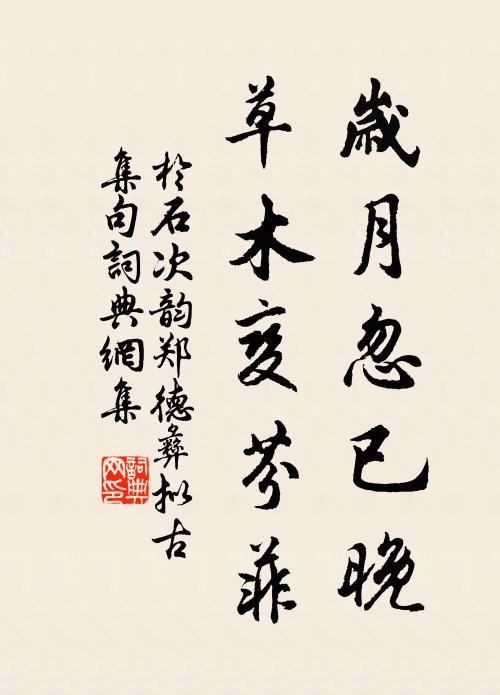 歲月忽已晚
草木变芬菲
於石次韵郑德彝拟古
集句詞典網集
詞典
网印